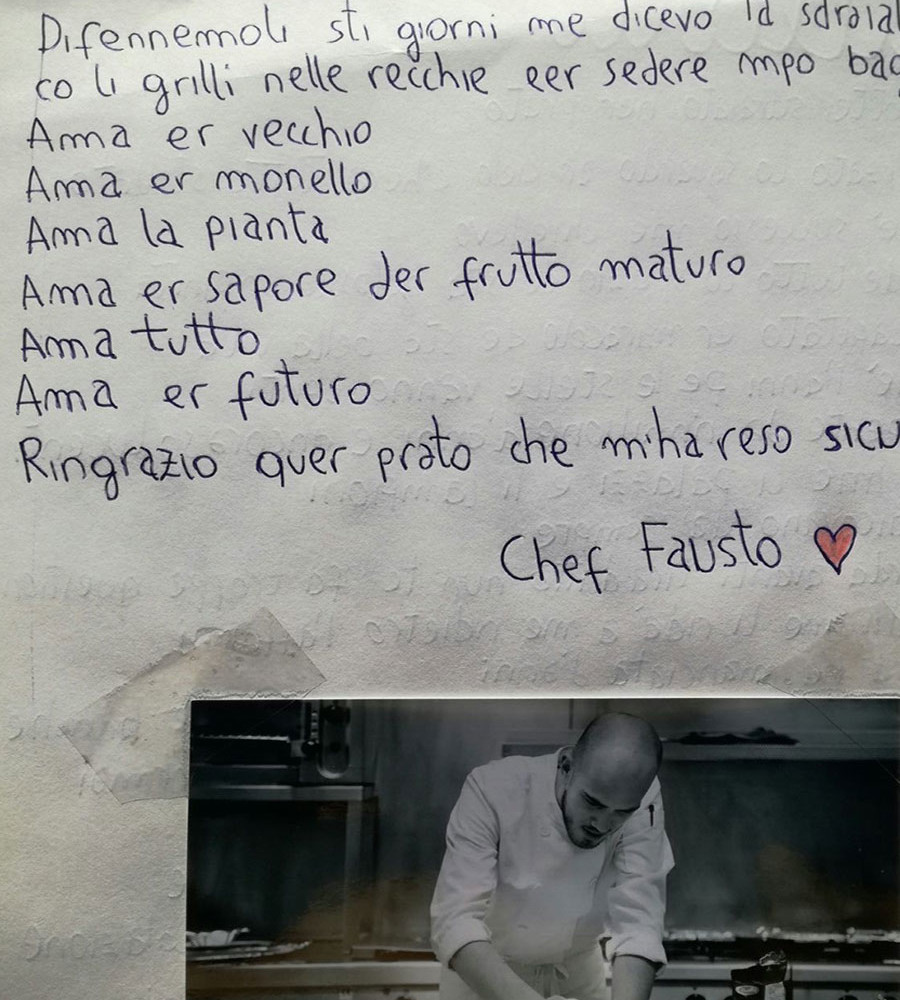 Difennemoli sti giorni me dicevo là sdraia
co li grilli nelle recchie eer sedere mpo bag
Ama er vecchio
Ama er monello
Ama la pianta
Ama er sapore der frutto maturo
Ama tutto
Ama er futuro
Ringrazio quer prato che m'ha reso sicu
Chef Fausto